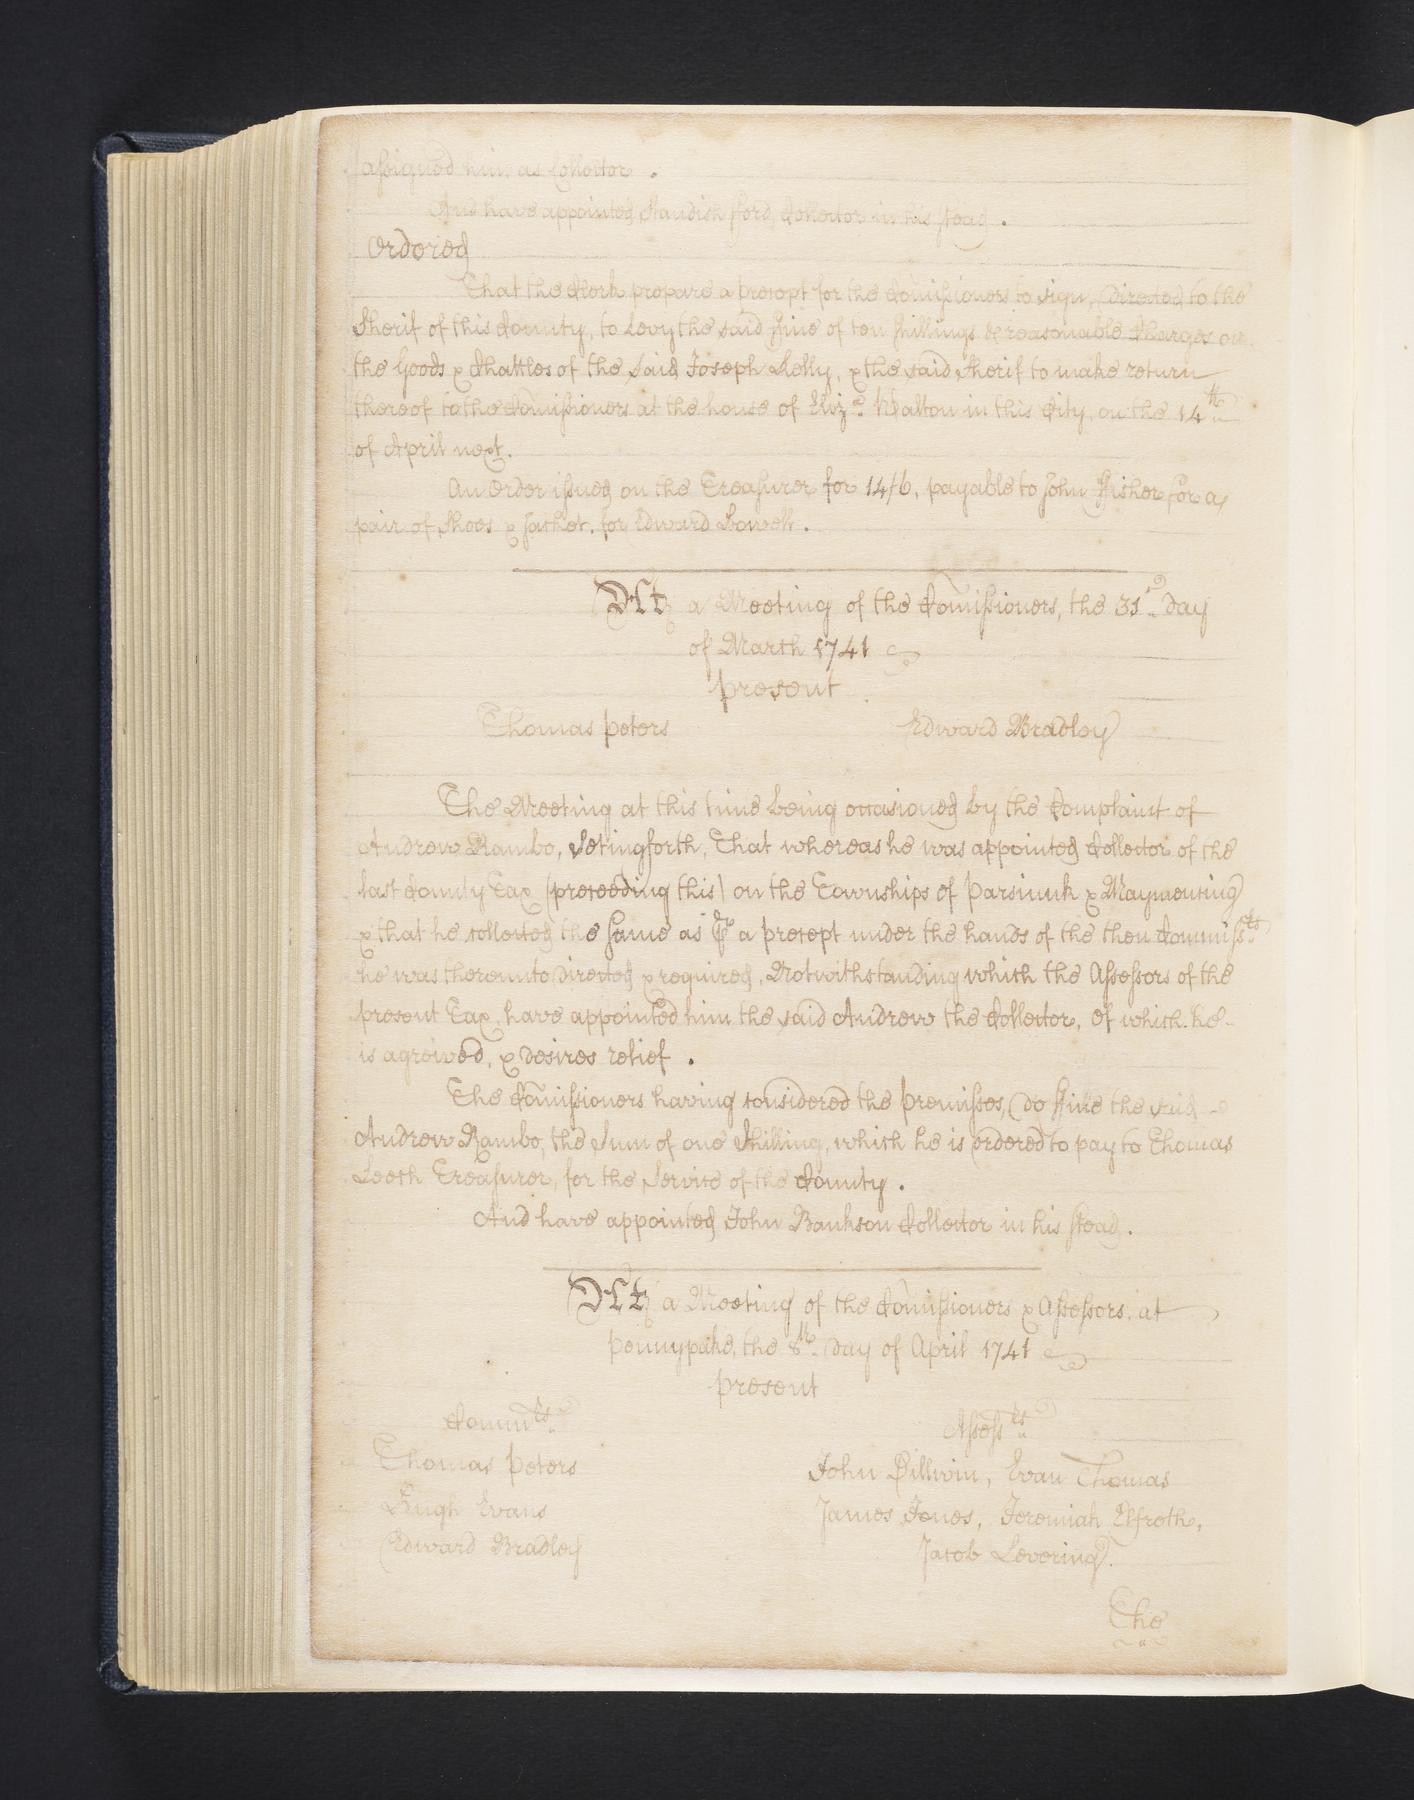 assigned him as Collector.
And have appointed Standish Ford, Collector in his stead.
Ordered
That the Clerk prepare a precept for the Comissioners to sign, directed to the
Sherif of this County, to Levy the said Fine of ten shillings & reasonable Charges on
the Goods & Chattles of the said Joseph Kelly, & the said Sherif to make return
thereof to the Comissioners at the house of Eliz.a Walton in this City, on the 14th
of April next.
An Order issued on the Treasurer for 14/6, payable to John Fisher for a
pair of Shoes & for Edward
At a Meeting of the Comissioners, the 31st day
of March 1741
present
Thomas Peters Edward Bradley
The Meeting at this time being occasioned by the Complaint of
Andrew Rambo, Setingforth, That whereas he was appointed Collector of the
last County Tax (preceeding this) on the Townships of Parsiunk & Maymensing
& that he collected the same as ⅌ a precept under the hands of the then Commiss.rs
he was thereunto directed & required, Notwithstanding which the Assessors of the
present Tax, have appointed him the said Andrew the Collector, of which he
is agreived, & desires relief.
The Comissioners having considered the premisses, do Fine the said
Andrew Rambo, the Sum of one Shilling, which he is ordered to pay to Thomas
Leech Treasurer, for the Service of the County.
And have appointed John Bankson Collector in his stead.
At a Meeting of the Comissioners & Assessors, at
Pennypake, the 8th day of April 1741
present
Comm.rs Assess.rs
Thomas Peters John Dillwin, Evan Thomas
Hugh Evans James Jones, Jeremiah Elfreth,
Edward Bradley Jacob Levering.
The